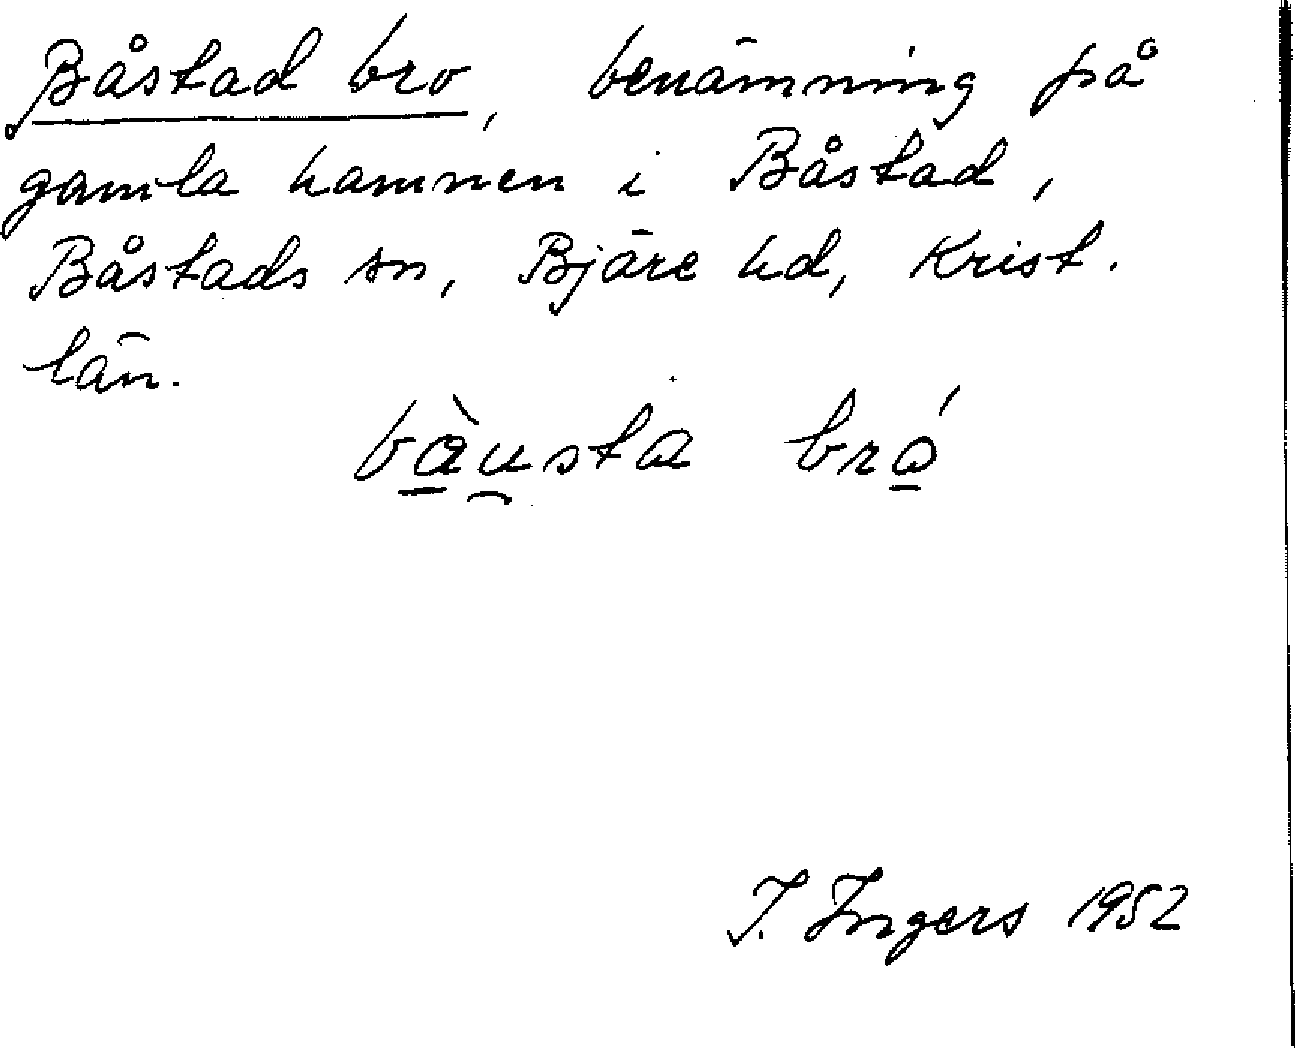 Båstad bro, benämning på
gamla hamnen i Båstad,
Båstads sn, Bjäre hd, Krist.
län.
bàu̯sta bró
I. Ingers 1952